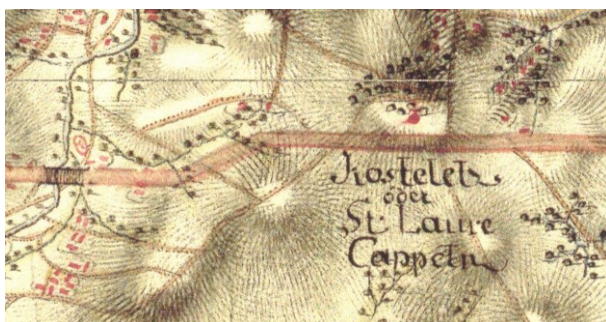 Kosteletz
oder
St Laure
Cappeln